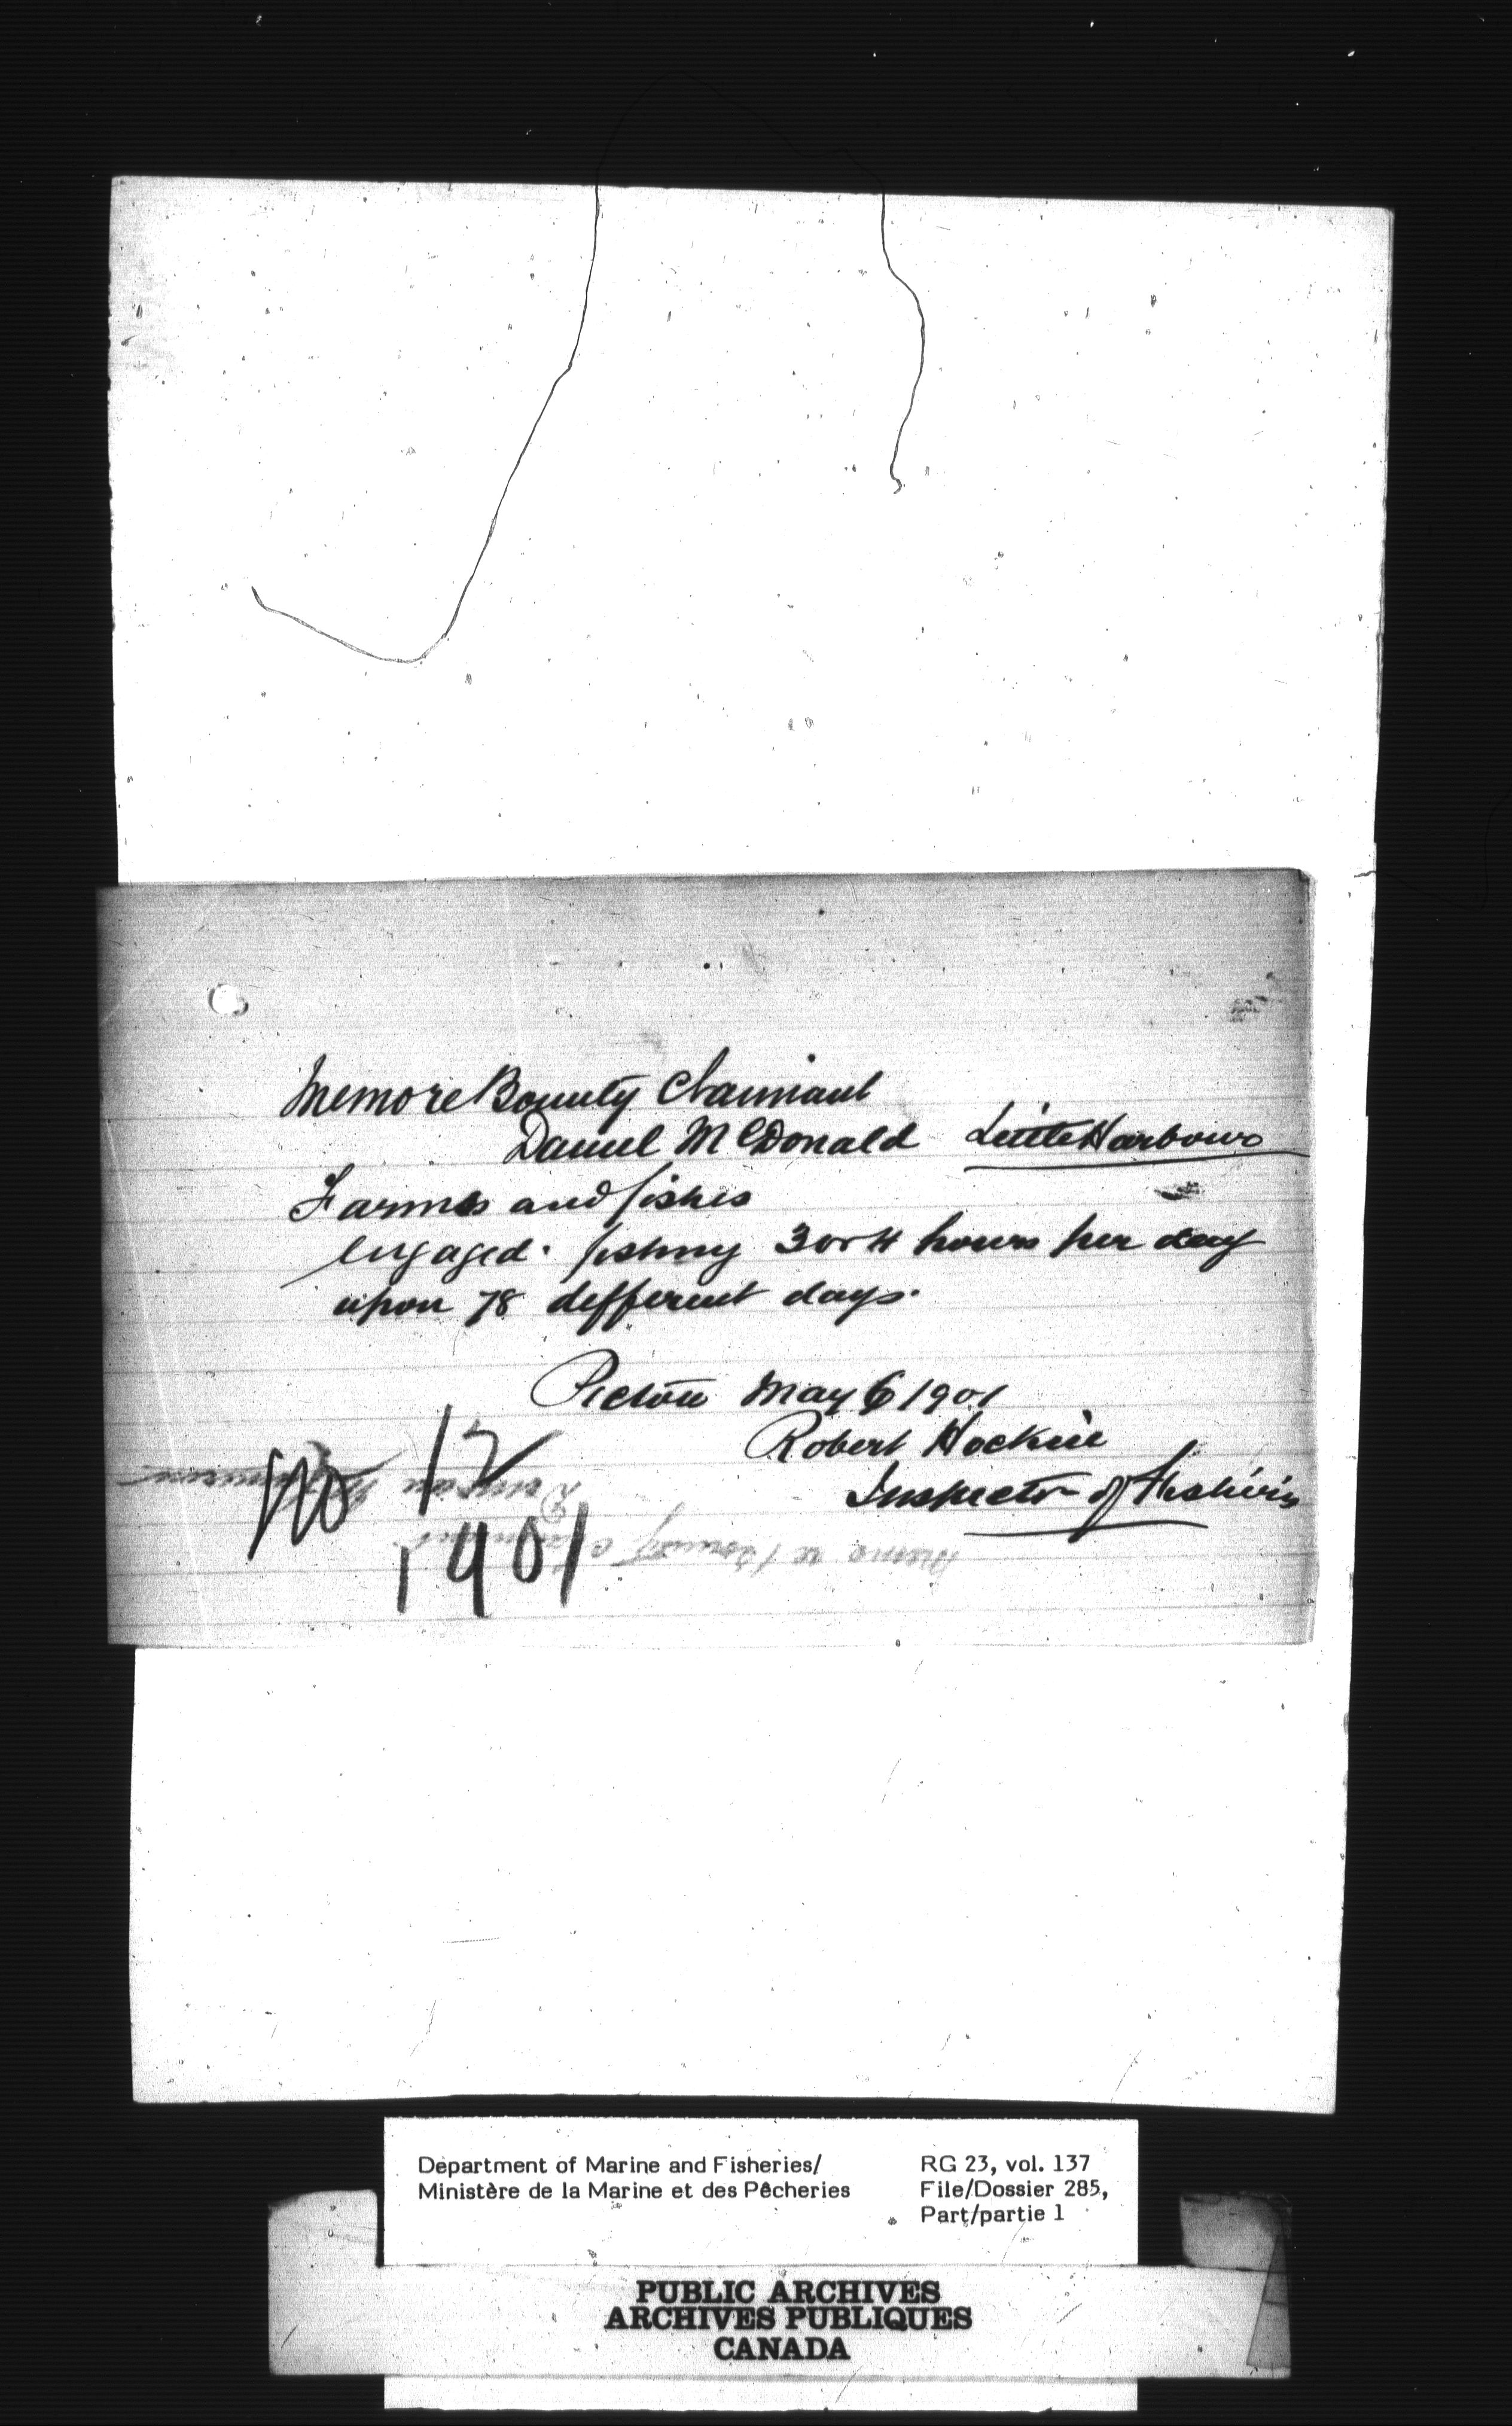 Memo re Bounty Claimant
Daniel McDonald Little Harbour
Farms and fishes
engaged. fishing 3 or 4 hours per day
upon 78 different days.
Pictou May 6 1901
Robert Hockin
Inspector of Fisheries
12
1901
Memo re Bounty Claimant
Department of Marine and Fisheries/
Ministère de la Marine et des Pêcheries
RG 23, vol. 137
File/Dossier 285,
Part/partie 1
PUBLIC ARCHIVES
ARCHIVES PUBLIQUES
CANADA